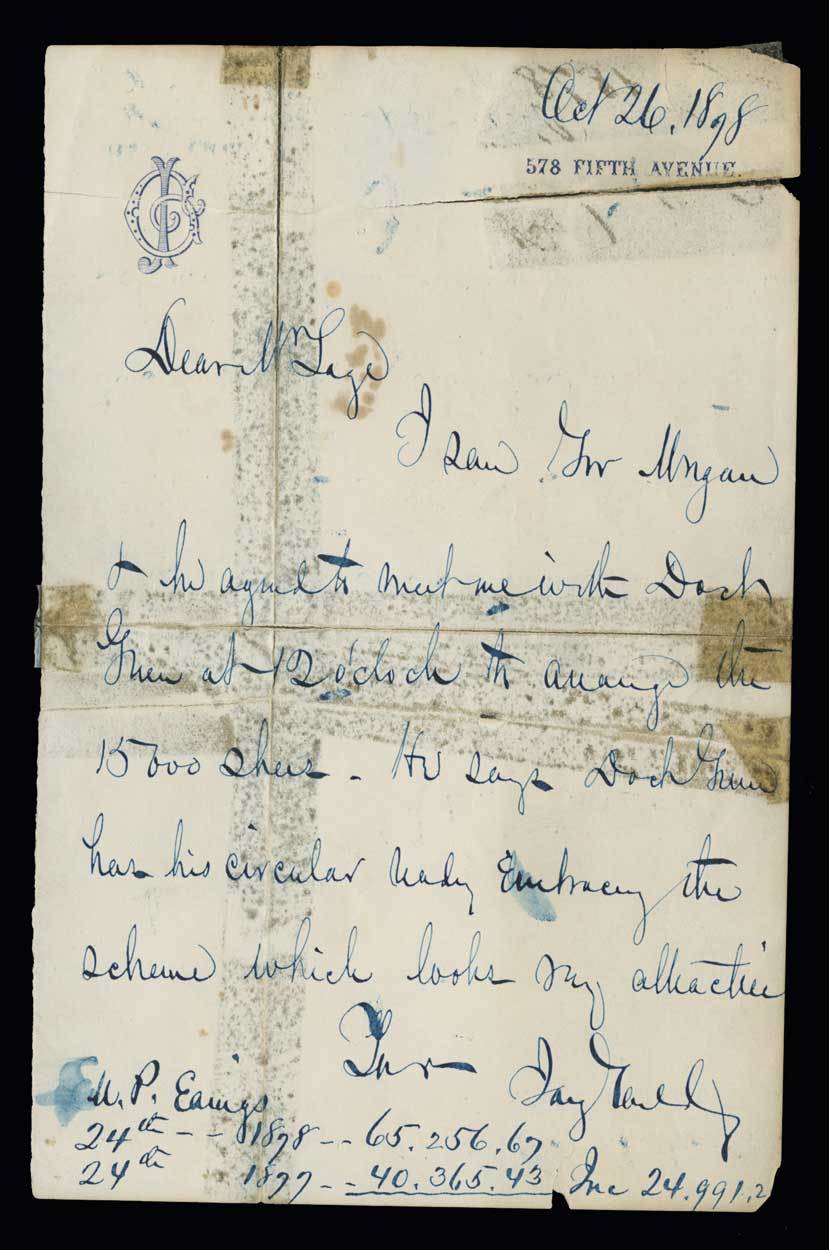 Oct 26, 1878
578 FIFTH AVENUE.
JG
Dear Mr Sage
I saw Gov Morgan
& he agreed to meet me with Doct
Green at 12 o'clock to arrange the
15000 shars - He says Doct Green
has his circular ready Embracing the
scheme which looks very attractive
Yours Jay Gould
U.P. Earnigs
24th - - 1878 - - 65.256.67
24th 1877 - - 40.365.43 Inc 24.991.2